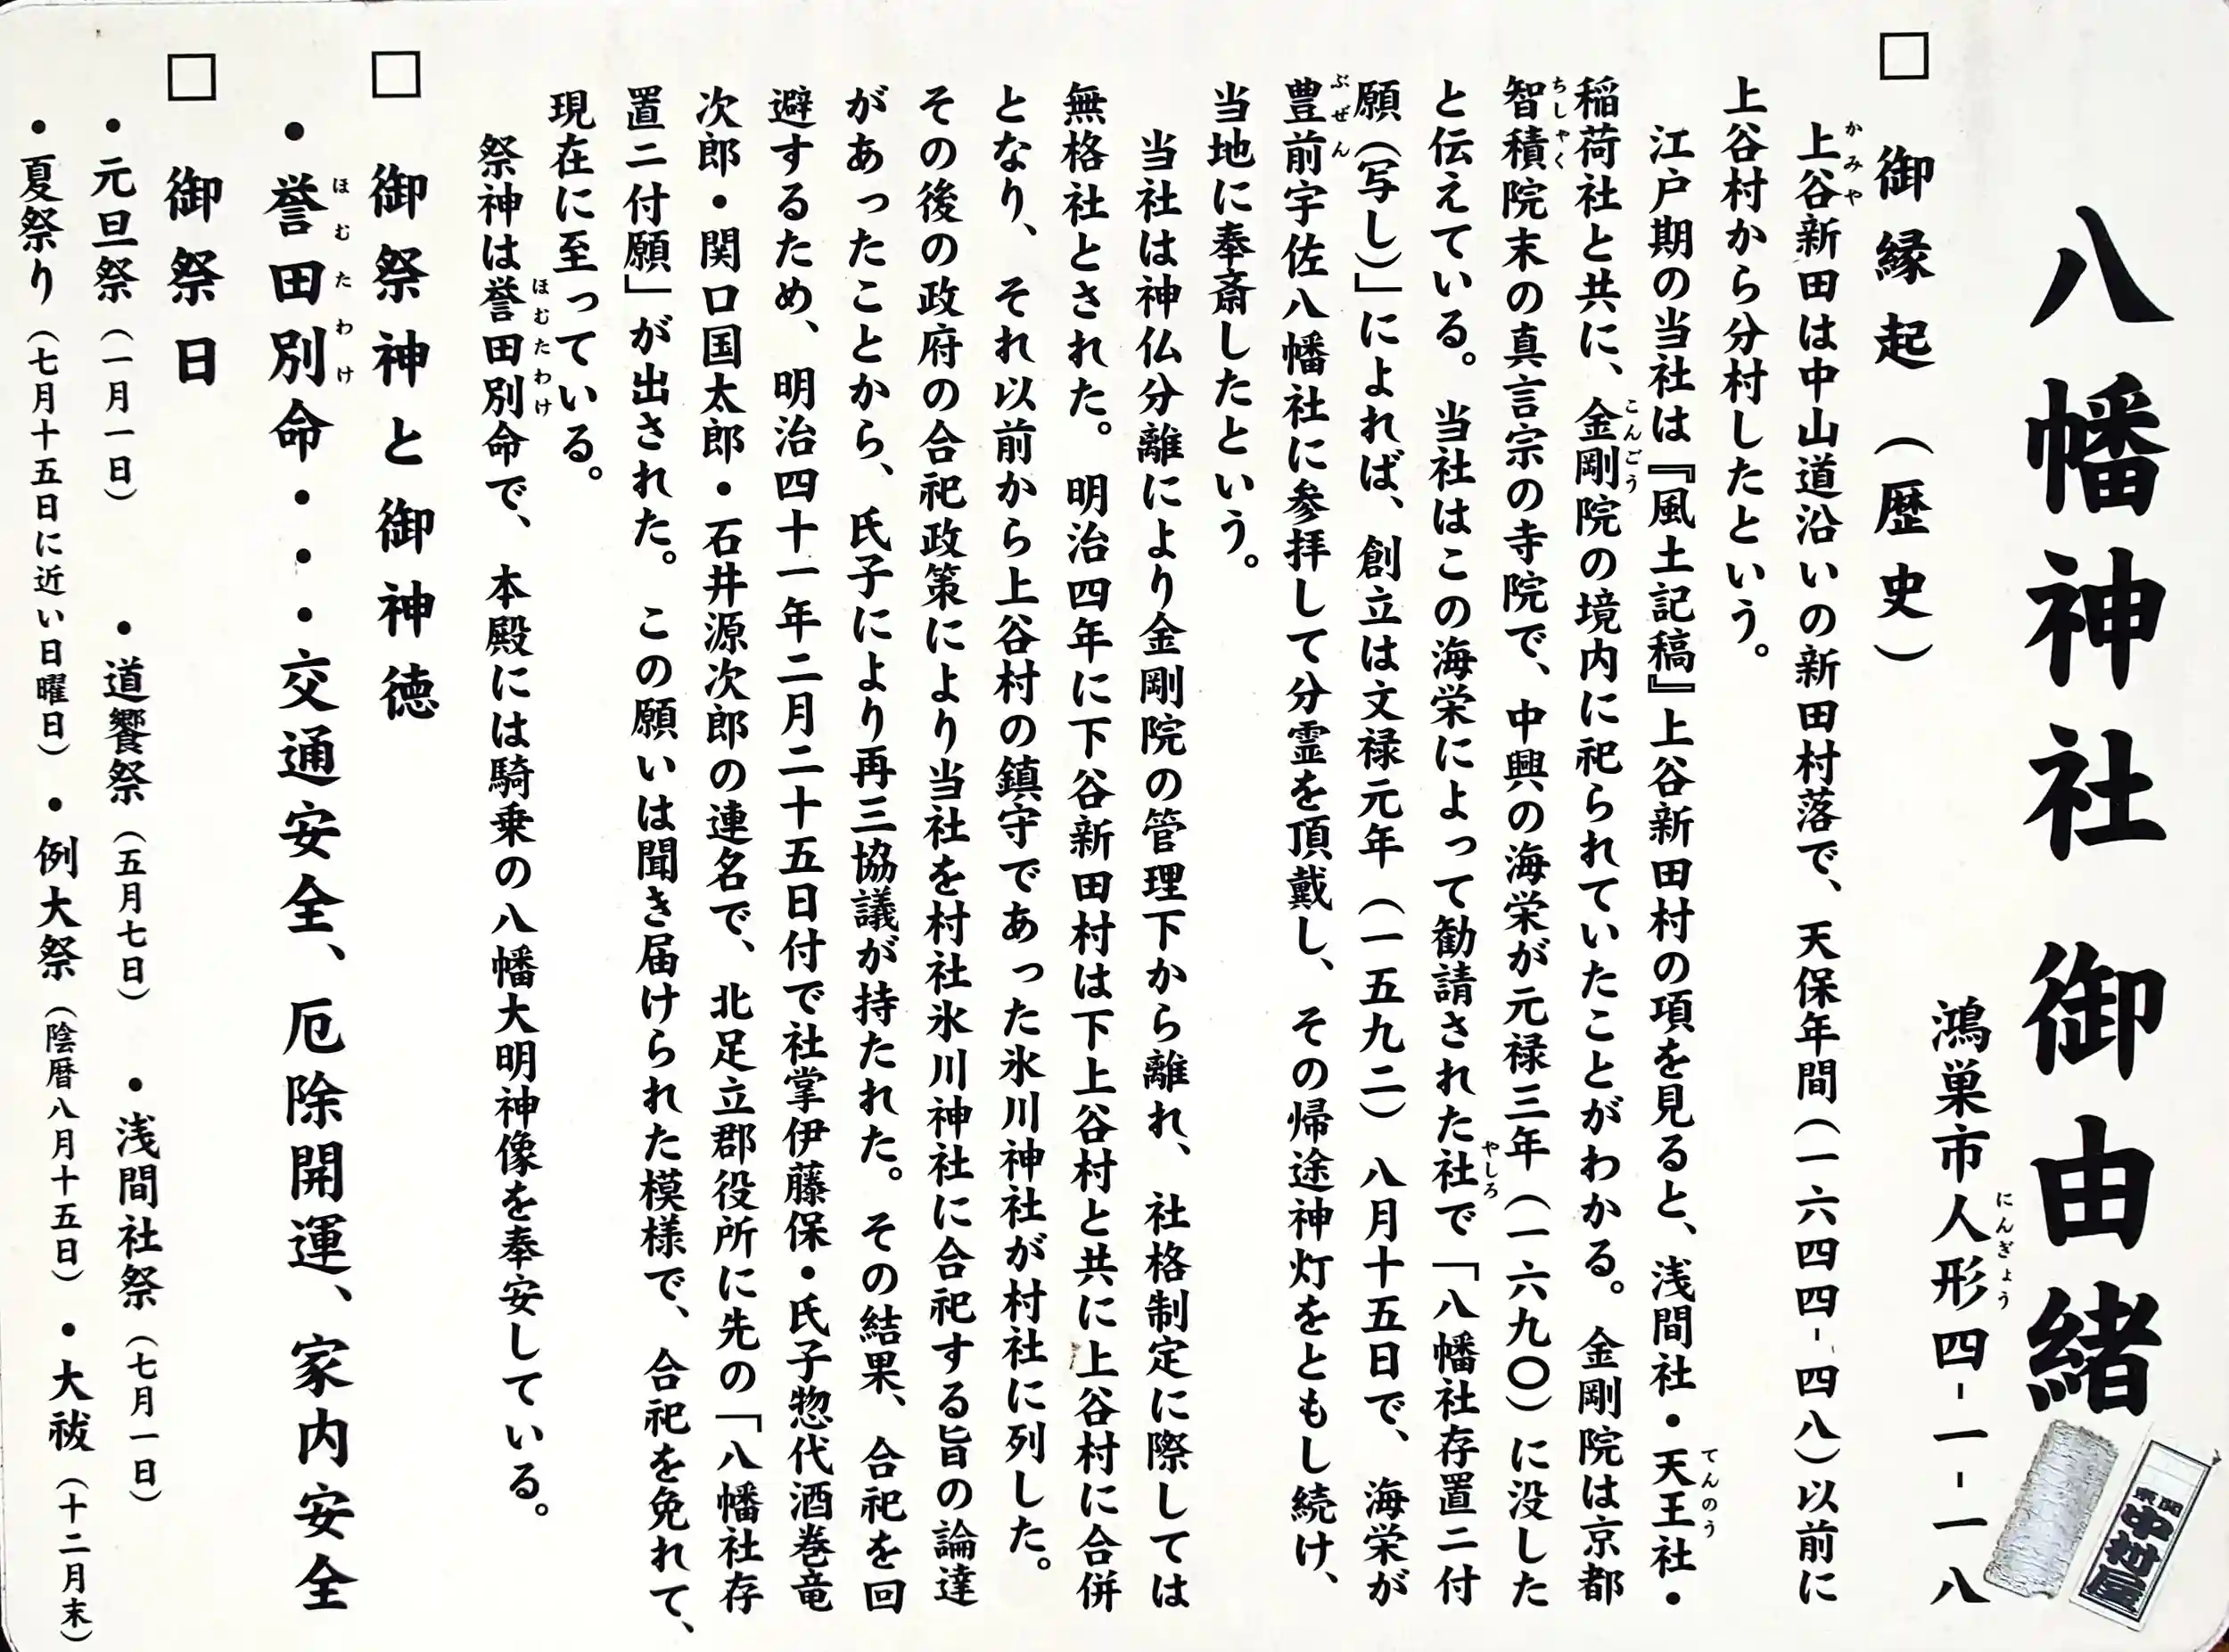 八幡神社 御由緒
鴻巣市人形四-一-一八
にんぎょう
□ 御縁起（歴史）
上谷新田は中山道沿いの新田村落で、天保年間（一六四四-四八）以前に
かみや
上谷村から分村したという。
江戸期の当社は『風土記稿』上谷新田村の項を見ると、浅間社・天王社・
てんのう
稲荷社と共に、金剛院の境内に祀られていたことがわかる。金剛院は京都
こんごう
智積院末の真言宗の寺院で、中興の海栄が元禄三年（一六九〇）に没した
ちしゃく
と伝えている。当社はこの海栄によって勧請された社で「八幡社存置二付
やしろ
願（写し）」によれば、創立は文禄元年（一五九二）八月十五日で、海栄が
豊前宇佐八幡社に参拝して分霊を頂戴し、その帰途神灯をともし続け、
ぶぜん
当地に奉斎したという。
当社は神仏分離により金剛院の管理下から離れ、社格制定に際しては
無格社とされた。明治四年に下谷新田村は下上谷村と共に上谷村に合併
となり、それ以前から上谷村の鎮守であった氷川神社が村社に列した。
その後の政府の合祀政策により当社を村社氷川神社に合祀する旨の論達
があったことから、氏子により再三協議が持たれた。その結果、合祀を回
避するため、明治四十一年二月二十五日付で社掌伊藤保・氏子惣代酒巻竜
次郎・関口国太郎・石井源次郎の連名で、北足立郡役所に先の「八幡社存
置二付願」が出された。この願いは聞き届けられた模様で、合祀を免れて、
現在に至っている。
祭神は誉田別命で、本殿には騎乗の八幡大明神像を奉安している。
ほむたわけ
□ 御祭神と御神徳
・誉田別命・・・交通安全、厄除開運、家内安全
ほむたわけ
□ 御祭日
・元旦祭（一月一日） ・道饗祭（五月七日） ・浅間社祭（七月一日）
・夏祭り（七月十五日に近い日曜日）・例大祭（陰暦八月十五日）・大祓（十二月末）
関東
中村屋